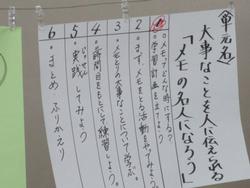 (単元名)
大事なことを人に伝える
「メモの名人になろう」
1 ○メモってどんな時にする?
○学習計画を立てよう。
2 まず、メモをとる活動をやってみよう
3 メモとりの大事なことについて学ぶ。
4 時間目をもとにして練習しよう。
5 実践してみよう
6 まとめ ふりかえり